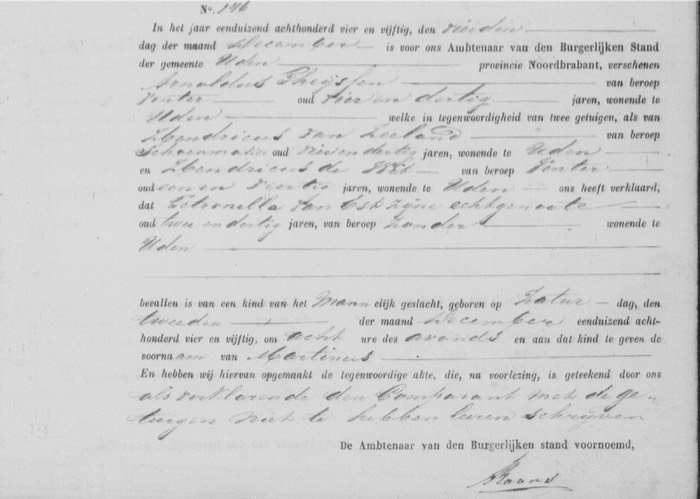 No. 146
In het jaar eenduizend achthonderd vier en vijftig, den vierden
dag der maand December is voor ons Ambtenaar van den Burgerlijken Stand
der gemeente Uden provincie Noordbrabant, verschenen
Arnoldus Theijssen van beroep
oud vier en dertig jaren, wonende te
Uden welke in tegenwoordigheid van twee getuigen, als van
Hendricus van Zeeland van beroep
Schoenmaker oud jaren, wonende te Uden
en Hendricus de van beroep
oud een en veertig jaren, wonende te Uden ons heeft verklaard,
dat Petronella van Esk zijne echtgenoote
oud twee en dertig jaren, van beroep zonder wonende te
Uden
bevallen is van een kind van het Mannelijk geslacht, geboren op Zatur-dag, den
tweeden der maand December eenduizend acht-
honderd vier en vijftig, om acht ure des avonds en aan dat kind te geven de
voornaam van Martinus
En hebben wij hiervan opgemaakt de tegenwoordige akte, die, na voorlezing, is geteekend door ons
als verklarende den Comparant met de ge-
tuigen niet te hebben leeren schrijven
De Ambtenaar van den Burgerlijken stand voornoemd,